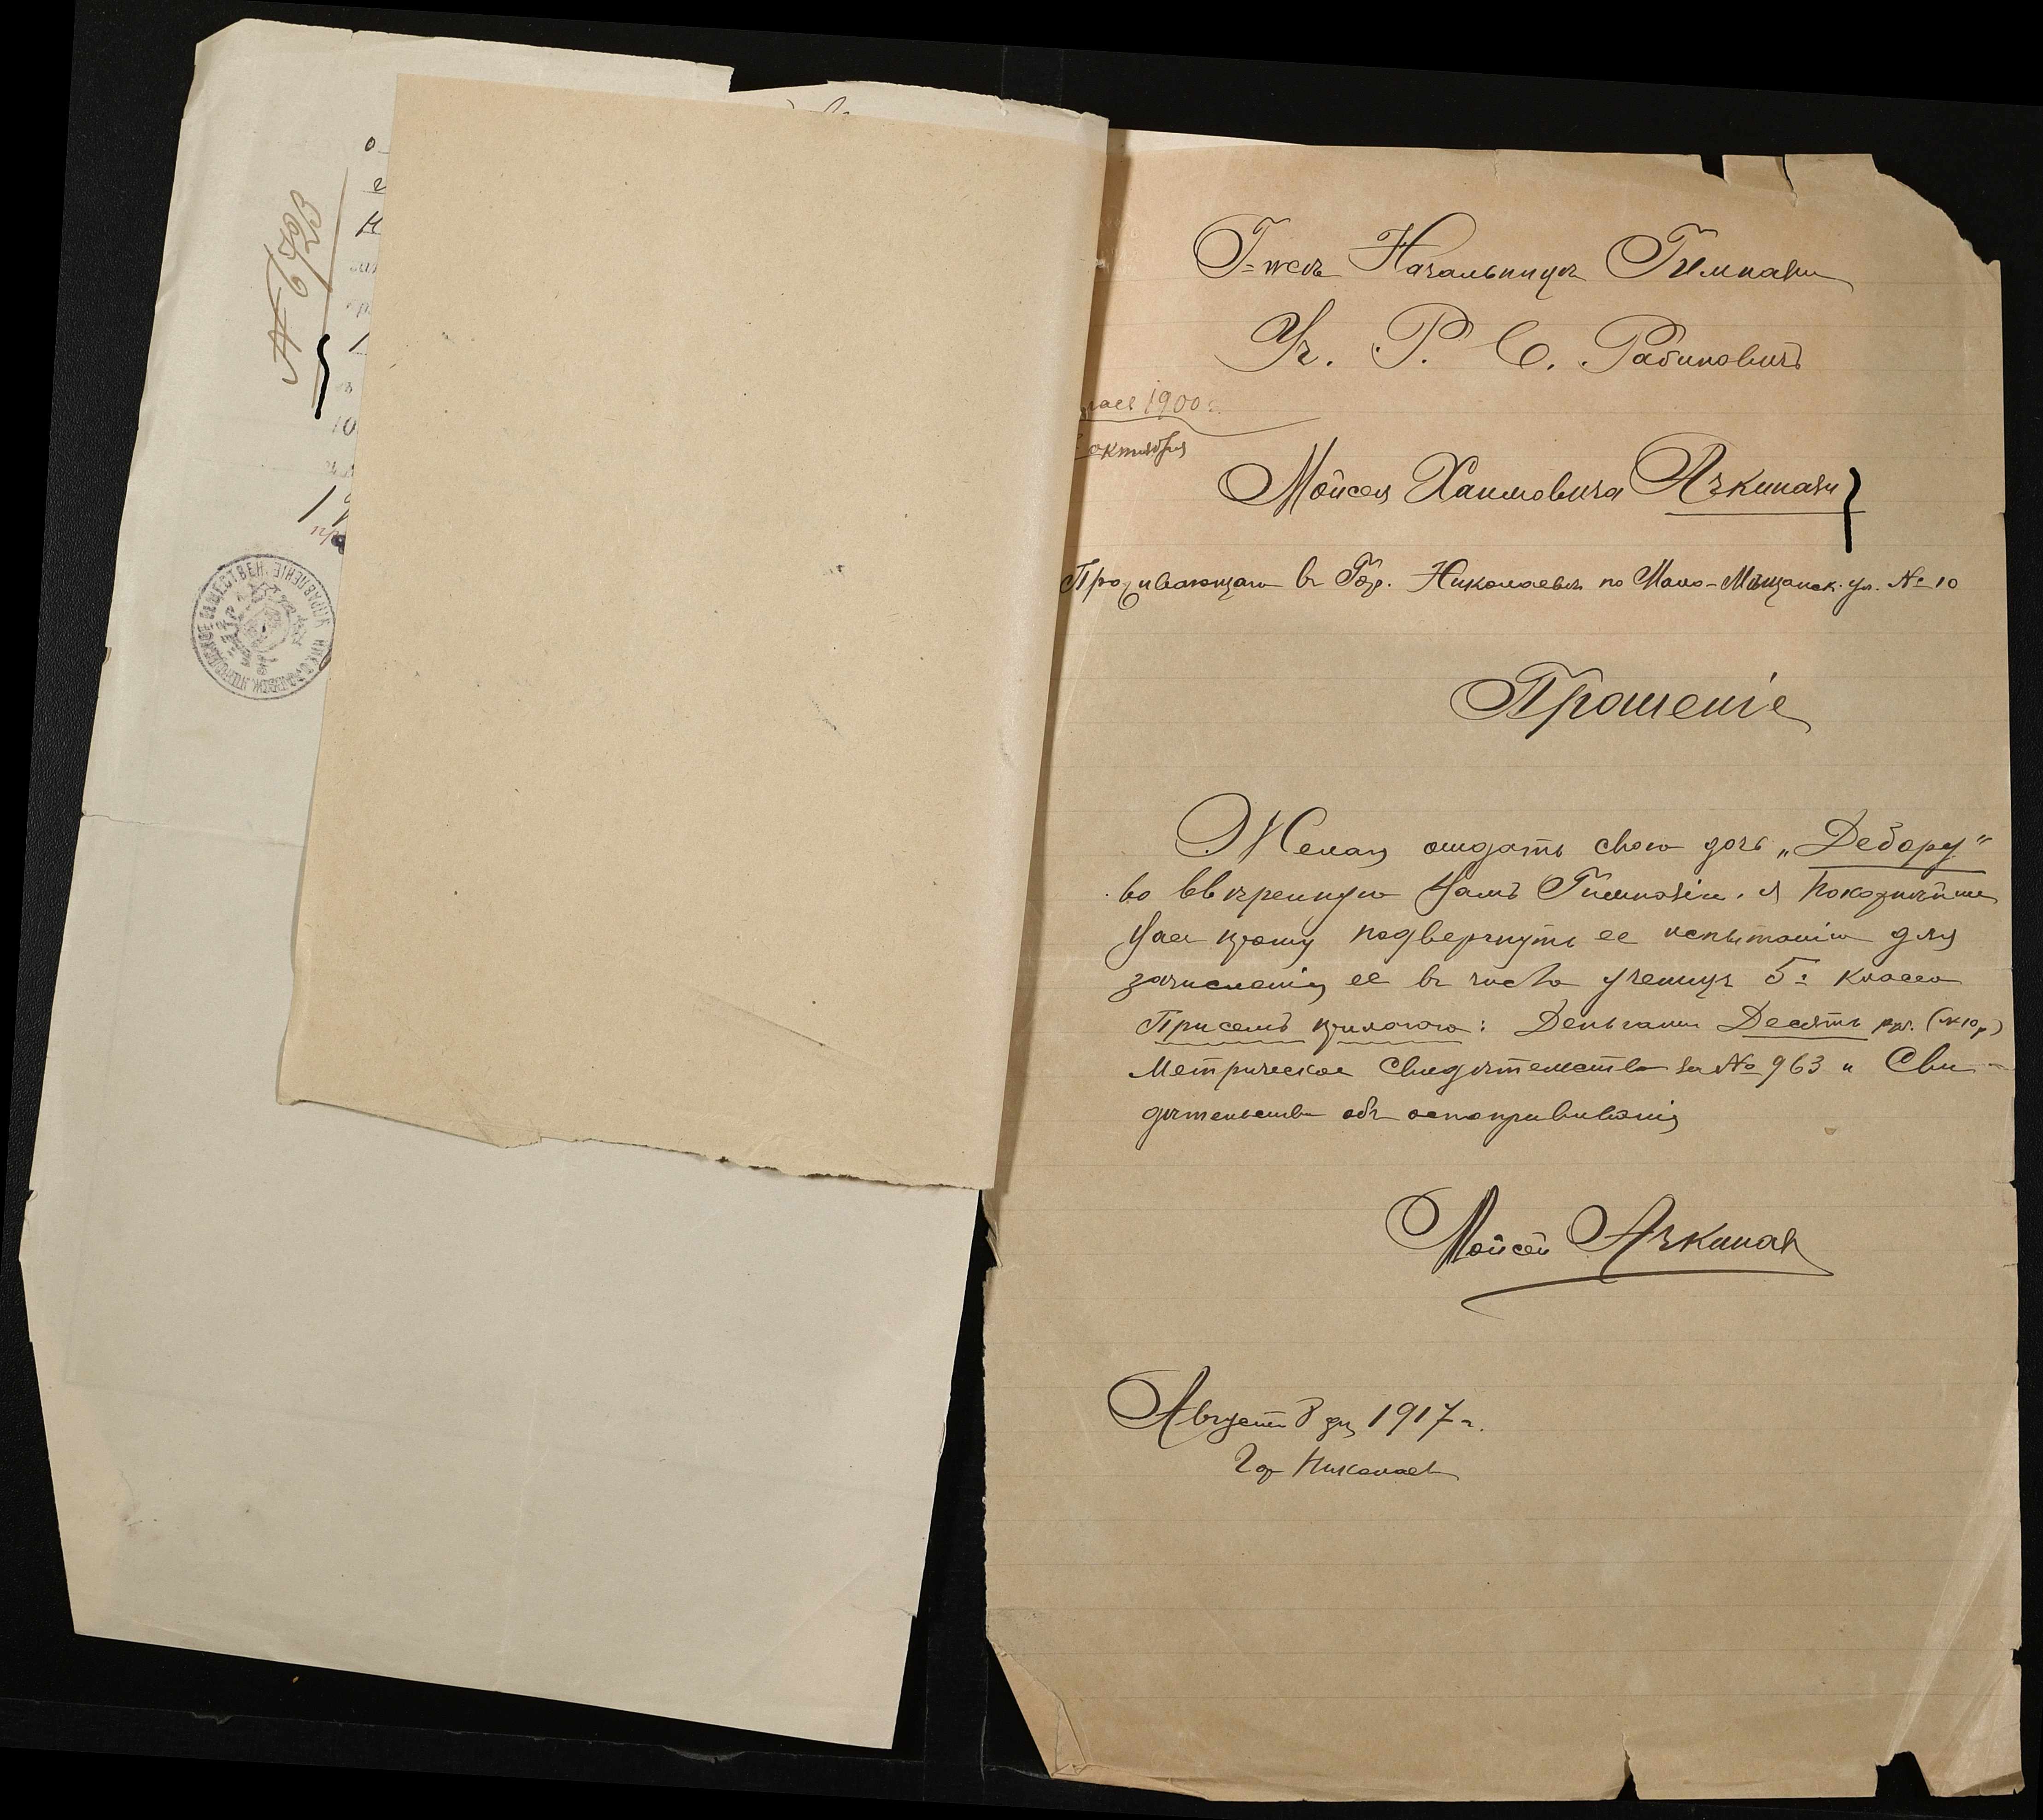 Г-жѣ Начальницѣ Гимназіи
Уч. Р. С. Рабиновичъ
1900 г.
октября
Мойсея Хаимовича Ачкинази
Проживающаго въ Гор. Николаевѣ по Мало-Мѣщанск. ул. № 10
Прошеніе
Желая отдать свою дочь „Дебору"
во ввѣренную Вамъ Гимназію, я покорнѣйше
Васъ прошу подвергнуть ее испытанію для
зачисленія ее въ число ученицъ 5го класса
При семъ прилагаю: Деньгами Десять руб.
Метрическое свидѣтельство за № 963 и Сви-
дѣтельство объ оспопрививаніи
Мойсей Ачкинази
Августа 8 дня 1917 г.
Гор Николаевъ